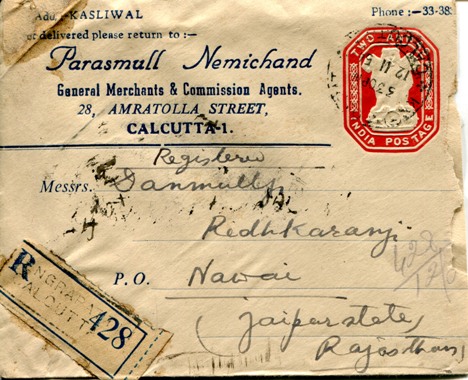 Add: KASLIWAL
Phone :-33-38
delivered please return to :-
Parasmull Nemichand
General Merchants & Commission Agents.
28, AMRATOLLA STREET,
CALCUTTA-1.
TWO
INDIA POSTAGE
12 11
Registered
Messrs. Danmullji
Redhkaranji
P.O. Nawai
(Jaipur state,
Rajasthan)
R
CALCUTT
428